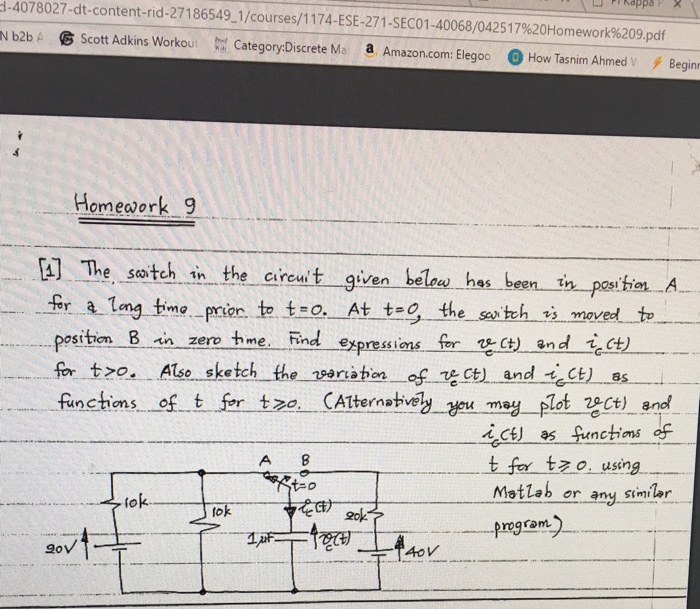 d-4078027-dt-content-rid-27186549_1/courses/1174-ESE-271-SEC01-40068/042517%20Homework%209.pdf
N b2b A Scott Adkins Workou Category:Discrete Ma a Amazon.com: Elegoo How Tasnim Ahmed V Beginn
Homework 9
[1] The switch in the circuit given below has been in position A
for a long time prior to t=0. At t=0, the switch is moved to
position B in zero time. Find expressions for vc(t) and ic(t)
for t>0. Also sketch the variation of vc(t) and ic(t) as
functions of t for t≥0. (Alternatively you may plot vc(t) and
ic(t) as functions of
t for t≥0. using
Matlab or any similar
program)
A B
t=0
10k
10k
ic(t)
20k
1μF
vc(t)
20V
40V